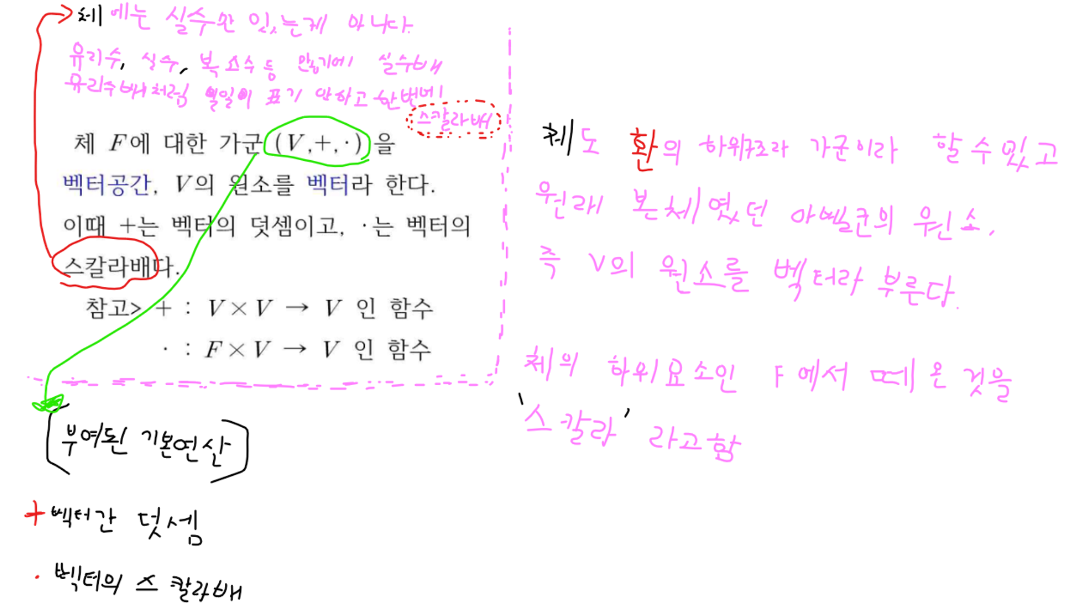 체에는 실수만 있는게 아니다.
유리수, 실수, 복소수등 많기에 실수배
유리수배처럼 일일이 표기 안하고 한번에
스칼라배
체 F에 대한 가군 (V,+,·)을
벡터공간, V의 원소를 벡터라 한다.
이때 +는 벡터의 덧셈이고, ·는 벡터의
스칼라배다.
참고> + : V×V → V 인 함수
· : F×V → V 인 함수
[부여된 기본연산]
+ 벡터간 덧셈
· 벡터의 스칼라배
체도 환의 하위구조라 가군이라 할 수 있고
원래 본체였던 아벨군의 원소,
즉 V의 원소를 벡터라 부른다.
체의 하위요소인 F에서 떼온 것을
'스칼라' 라고함